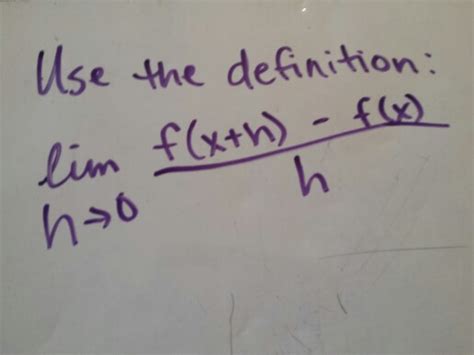 Use the definition:
lim f(x+h) - f(x)
h→0 h